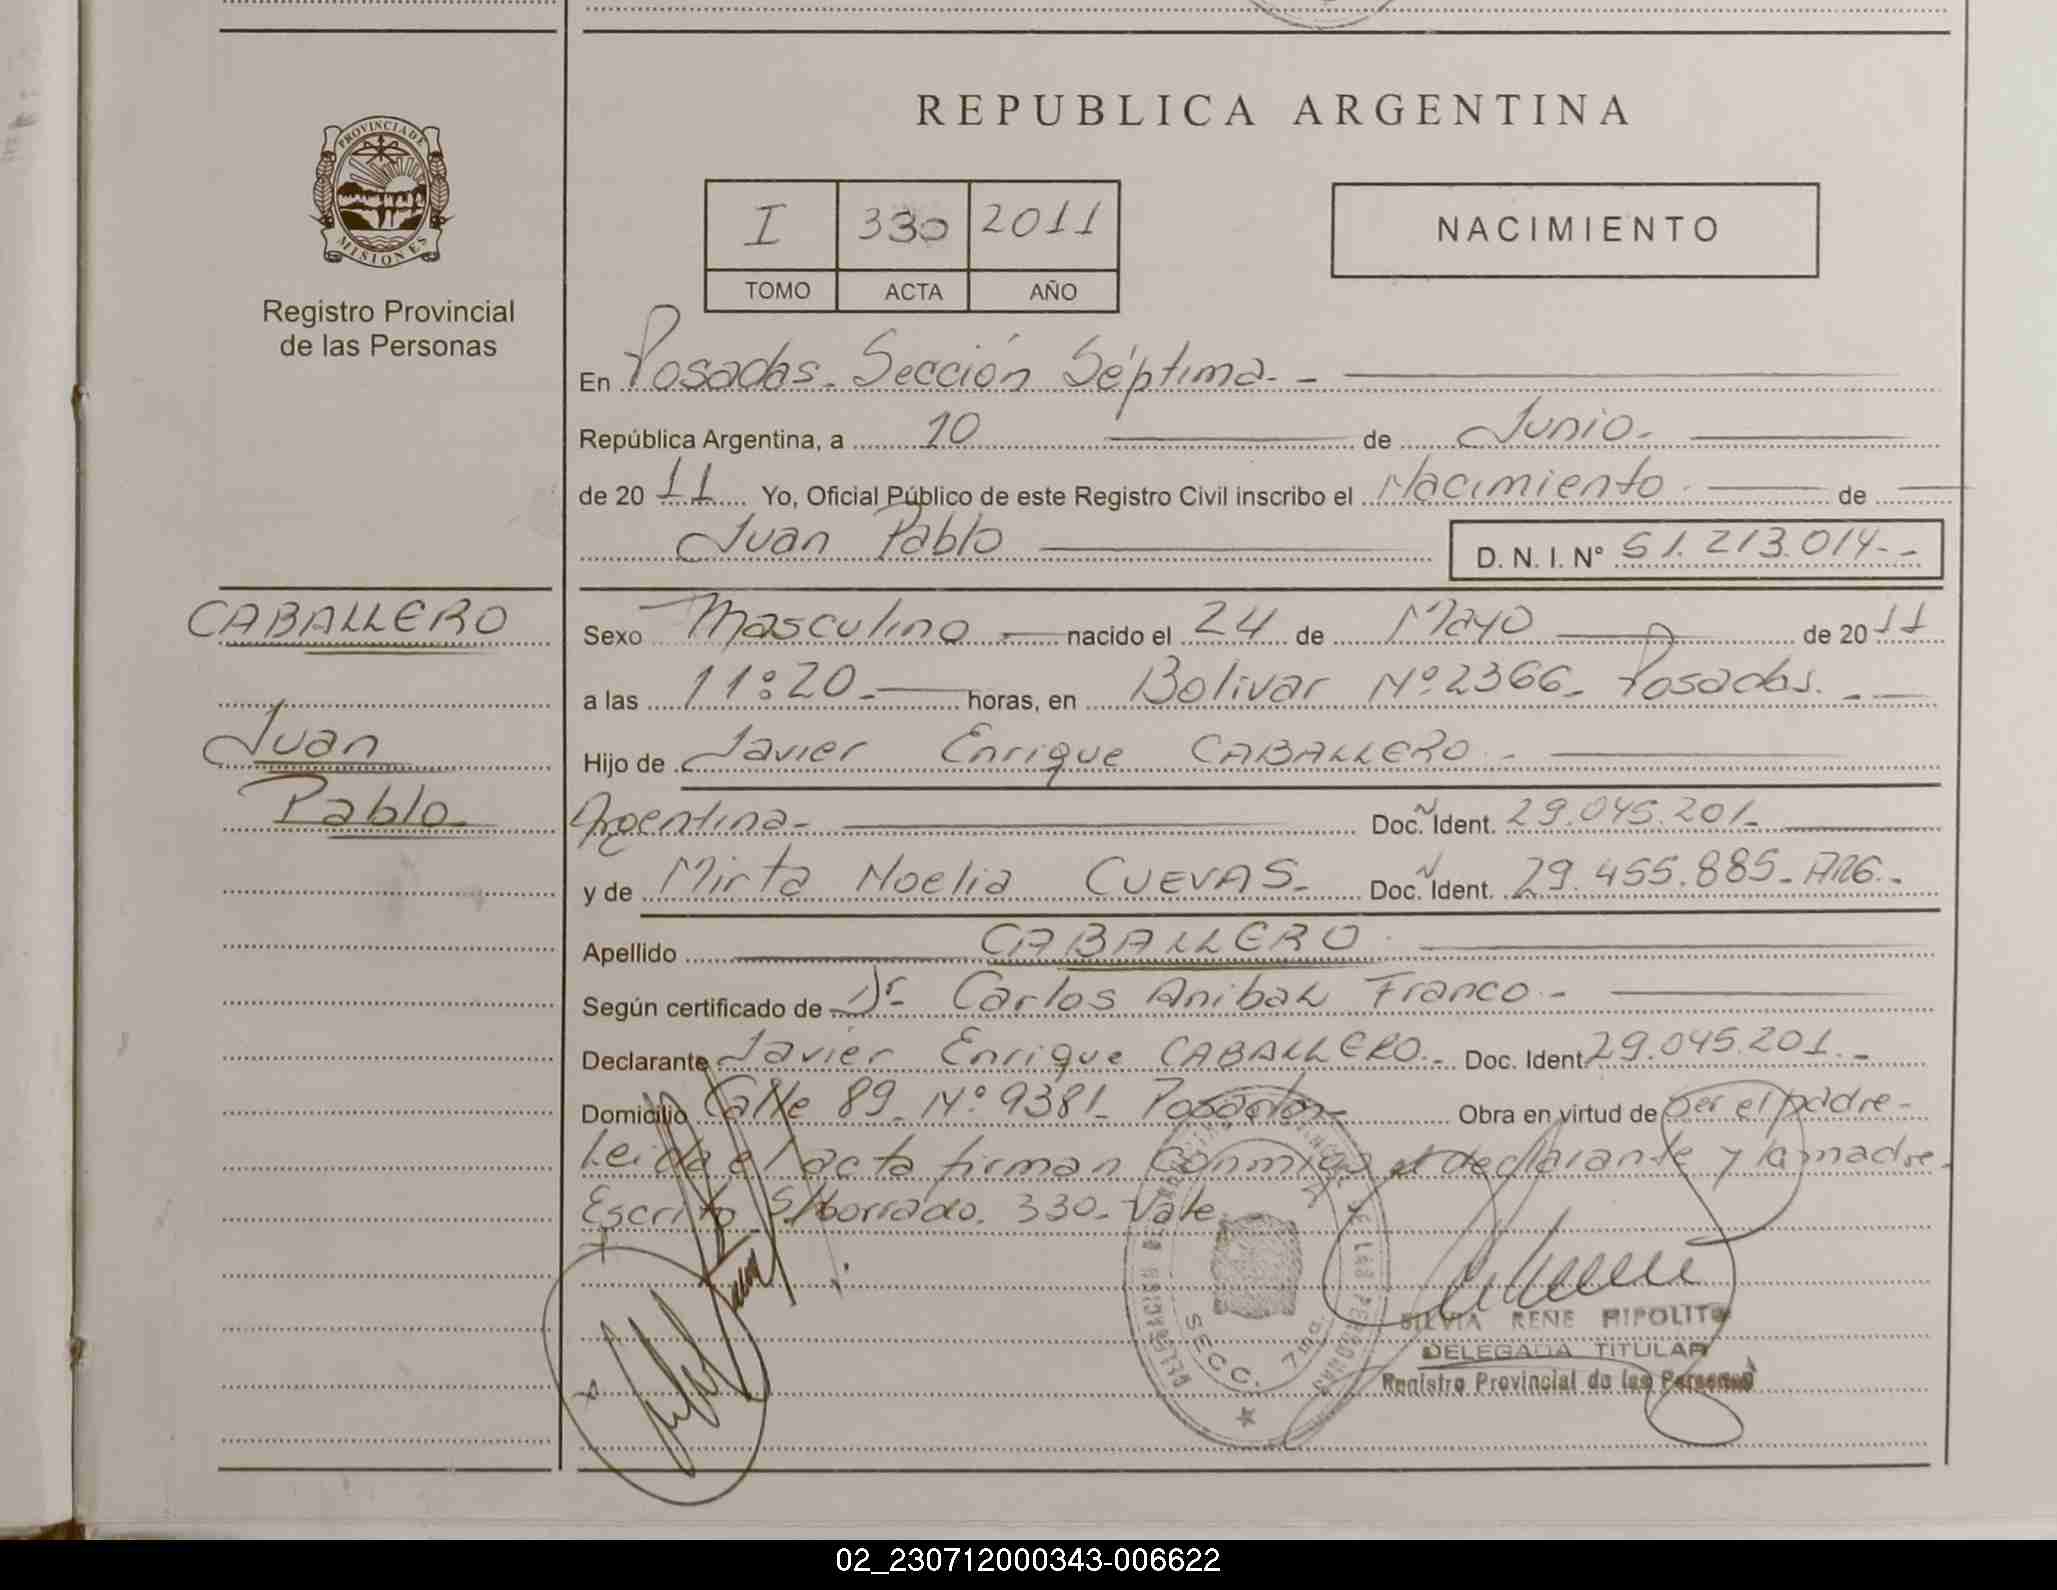 REPUBLICA ARGENTINA
PROVINCIA DE
MISIONES
Registro Provincial
de las Personas
I 330 2011
TOMO ACTA AÑO
NACIMIENTO
En Posadas. Sección Séptima.-
República Argentina, a 10 de Junio.
de 2011 Yo, Oficial Público de este Registro Civil inscribo el Nacimiento de
Juan Pablo D. N. I. N° 51.213.014.-
CABALLERO
Juan
Pablo.
Sexo Masculino nacido el 24 de Mayo de 2011
a las 11:20.- horas, en Bolivar N° 2366. Posadas.-
Hijo de Javier Enrique CABALLERO.
Argentina.- Doc. Ident. 29.045.201.
y de Mirta Noelia CUEVAS. Doc. Ident. 29.455.885. ARG.-
Apellido CABALLERO.
Según certificado de Dr. Carlos Anibal Franco.-
Declarante Javier Enrique CABALLERO.- Doc. Ident. 29.045.201.-
Domicilio Calle 89. N° 9381. Posadas. Obra en virtud de ser el padre.
Leida el acta firman conmigo el declarante y la madre.
Escrito S/borrado. 330. Vale.
SECC. 7ma.
SILVIA RENE HIPOLITO
DELEGADA TITULAR
Registro Provincial de las Personas
02_230712000343-006622